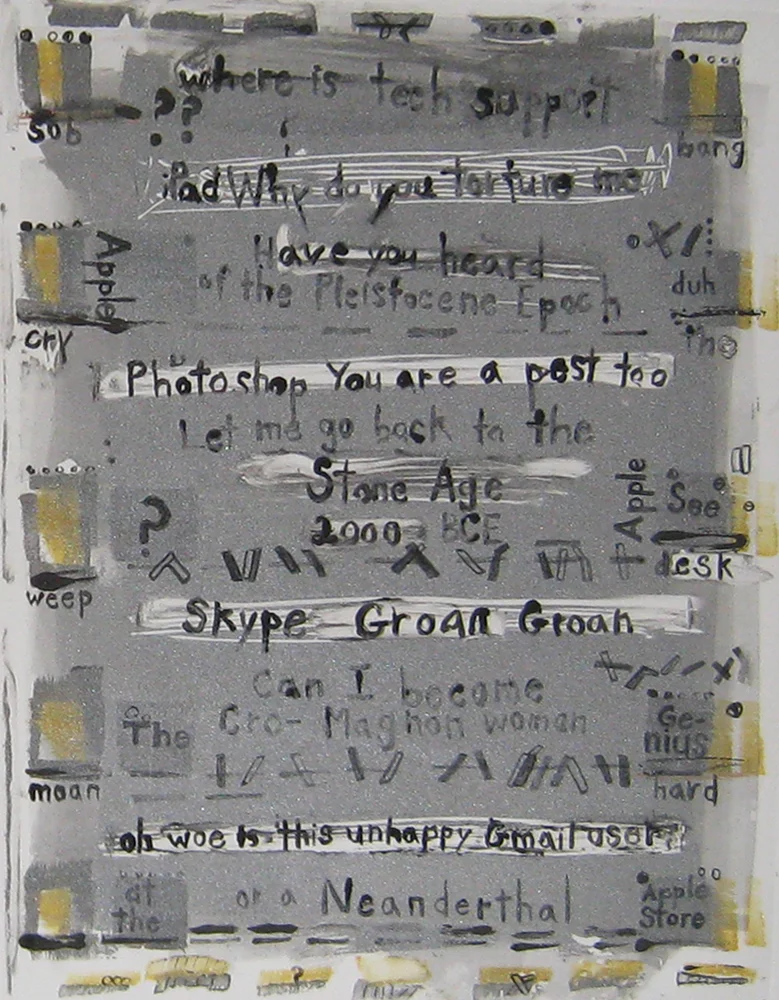 where is tech support
??
sob
bang
iPad Why do you torture me
Apple
Have you heard
of the Pleistocene Epoch
duh
cry
The
Photoshop You are a pest too
Let me go back to the
Stone Age
2000 BCE
?
Apple
See
desk
weep
Skype Groan Groan
Can I become
Cro-Magnon woman
The
Ge-
nius
moan
hard
oh woe is this unhappy Gmail user
at
the
or a Neanderthal
Apple
Store